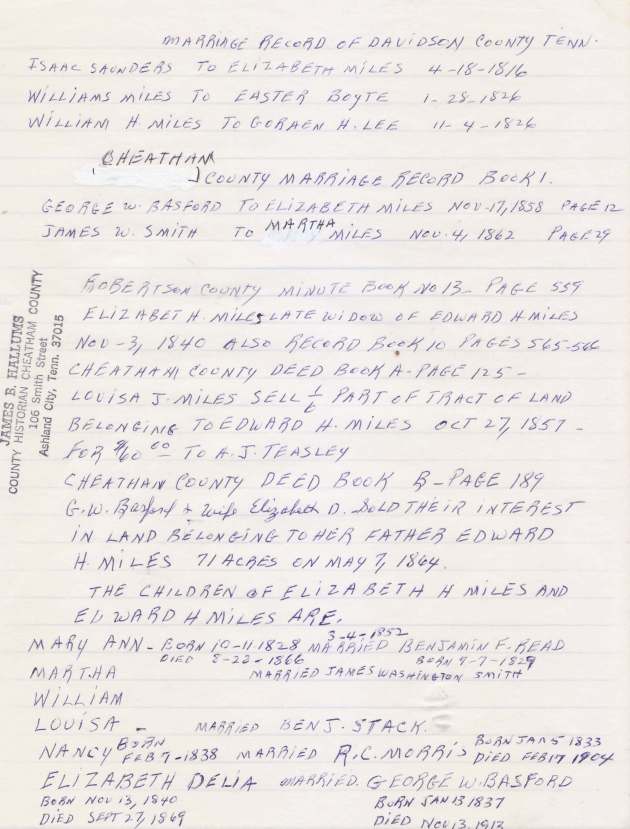 MARRIAGE RECORD OF DAVIDSON COUNTY TENN.
ISAAC SAUNDERS TO ELIZABETH MILES 4-18-1816
WILLIAMS MILES TO EASTER BOYTE 1-28-1826
WILLIAM H MILES TO GORAEN H. LEE 11-4-1826
CHEATHAM
COUNTY MARRIAGE RECORD BOOK 1.
GEORGE W. BASFORD TO ELIZABETH MILES NOV-17, 1858 PAGE 12
JAMES W. SMITH TO MARTHA MILES NOV. 4, 1862 PAGE 29
ROBERTSON COUNTY MINUTE BOOK NO 13 - PAGE 559
ELIZABETH H. MILES LATE WIDOW OF EDWARD H MILES
NOV-3, 1840 ALSO RECORD BOOK 10 PAGES 565-566
CHEATHAM COUNTY DEED BOOK A-PAGE 125-
LOUISA J-MILES SELL PART OF TRACT OF LAND
BELONGING TO EDWARD H. MILES OCT 27, 1857-
FOR TO A.J. TEASLEY
CHEATHAM COUNTY DEED BOOK B-PAGE 189
G.W. Basford + Wife Elizabeth D. SOLD THEIR INTEREST
IN LAND BELONGING TO HER FATHER EDWARD
H. MILES 71 ACRES ON MAY 7, 1864.
THE CHILDREN OF ELIZABETH H MILES AND
EDWARD H MILES ARE.
MARY ANN - BORN 10-11-1828 MARRIED 3-4-1852 BENJAMIN F. READ
DIED 8-22-1866 BORN 9-7-1829
MARTHA MARRIED JAMES WASHINGTON SMITH
WILLIAM
LOUISA - MARRIED BENJ. STACK.
NANCY BORN FEB 7-1838 MARRIED R.C. MORRIS BORN JAN 5 1833 DIED FEB 17 1904
ELIZABETH DELIA MARRIED. GEORGE W. BASFORD
BORN NOV 13, 1840 BORN JAN 13 1837
DIED SEPT 27, 1869 DIED NOV 13, 1912
JAMES B. HALLUMS
COUNTY HISTORIAN CHEATHAM COUNTY
106 Smith Street
Ashland City, Tenn. 37015